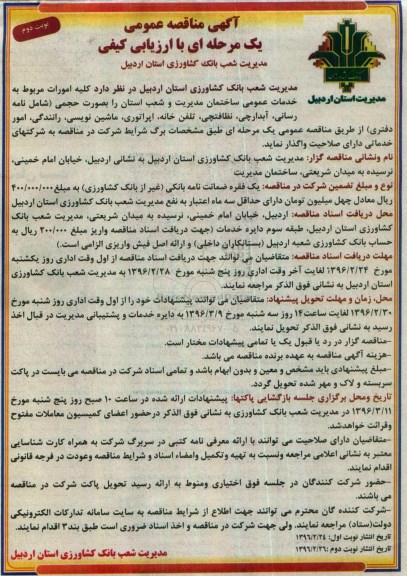 نوبت دوم
آگهی مناقصه عمومی
یک مرحله ای با ارزیابی کیفی
مدیریت شعب بانک کشاورزی استان اردبیل
مدیریت استان اردبیل
مدیریت شعب بانک کشاورزی استان اردبیل در نظر دارد کلیه امورات مربوط به
خدمات عمومی ساختمان مدیریت و شعب استان را بصورت حجمی (شامل نامه
رسانی، آبدارچی، نظافتچی، تلفن خانه، اپراتوری، ماشین نویسی، رانندگی، امور
دفتری) از طریق مناقصه عمومی یک مرحله ای طبق مشخصات برگ شرایط شرکت در مناقصه به شرکتهای
خدماتی دارای صلاحیت واگذار نماید.
نام ونشانی مناقصه گزار: مدیریت شعب بانک کشاورزی استان اردبیل به نشانی اردبیل، خیابان امام خمینی،
نرسیده به میدان شریعتی، ساختمان مدیریت
نوع و مبلغ تضمین شرکت در مناقصه: یک فقره ضمانت نامه بانکی (غیر از بانک کشاورزی) به مبلغ ۴۰۰/۰۰۰/۰۰۰
ریال معادل چهل میلیون تومان دارای حداقل سه ماه اعتبار به نفع مدیریت شعب بانک کشاورزی استان اردبیل
محل دریافت اسناد مناقصه: اردبیل، خیابان امام خمینی، نرسیده به میدان شریعتی، مدیریت شعب بانک
کشاورزی استان اردبیل، طبقه سوم دایره خدمات (جهت دریافت اسناد مناقصه واریز مبلغ ۲۰۰/۰۰۰ ریال به
حساب بانک کشاورزی شعبه اردبیل (بستانکاران داخلی) و ارائه اصل فیش واریزی الزامی است.)
مهلت دریافت اسناد مناقصه: متقاضیان می توانند جهت دریافت اسناد مناقصه از اول وقت اداری روز یکشنبه
مورخ ۱۳۹۶/۲/۲۴ لغایت آخر وقت اداری روز پنج شنبه مورخ ۱۳۹۶/۲/۲۸ به مدیریت شعب بانک کشاورزی
استان اردبیل به نشانی فوق الذکر مراجعه نمایند.
محل، زمان و مهلت تحویل پیشنهاد: متقاضیان می توانند پیشنهادات خود را از اول وقت اداری روز شنبه مورخ
۱۳۹۶/۲/۳۰ لغایت ساعت ۱۴ روز سه شنبه مورخ ۱۳۹۶/۳/۹ به دایره خدمات و پشتیبانی مدیریت در قبال اخذ
رسید به نشانی فوق الذکر تحویل نمایند.
-مناقصه گزار در رد یا قبول یک یا تمامی پیشنهادات مختار است.
-هزینه آگهی مناقصه به عهده برنده مناقصه می باشد.
-مبلغ پیشنهادی باید مشخص و معین و بدون ابهام باشد و تمامی اسناد شرکت در مناقصه می بایست در پاکت
سربسته و لاک و مهر شده تحویل گردد.
تاریخ ومحل برگزاری جلسه بازگشایی پاکتها: پیشنهادات ارائه شده در ساعت ۱۰ صبح روز پنج شنبه مورخ
۱۳۹۶/۳/۱۱ در مدیریت شعب بانک کشاورزی به نشانی فوق الذکر درحضور اعضای کمیسیون معاملات مفتوح
وقرائت خواهدشد.
-متقاضیان دارای صلاحیت می توانند با ارائه معرفی نامه کتبی در سربرگ شرکت به همراه کارت شناسایی
معتبر به نشانی اعلامی مراجعه ونسبت به تهیه وتکمیل وامضاء اسناد و شرایط مناقصه وعودت در فرجه قانونی
اقدام نمایند.
-حضور شرکت کنندگان در جلسه فوق اختیاری ومنوط به ارائه رسید تحویل پاکت شرکت در مناقصه
می باشند.
-شرکت کننده گان محترم می توانند جهت اطلاع از شرایط مناقصه به سایت سامانه تدارکات الکترونیکی
دولت(ستاد) مراجعه نمایند. ولی جهت شرکت در مناقصه و اخذ اسناد ضروری است طبق بند۳ اقدام نمایند.
تاریخ انتشار نوبت اول: ۱۳۹۶/۲/۲۴
تاریخ انتشار نوبت دوم: ۱۳۹۶/۲/۲۶
مدیریت شعب بانک کشاورزی استان اردبیل